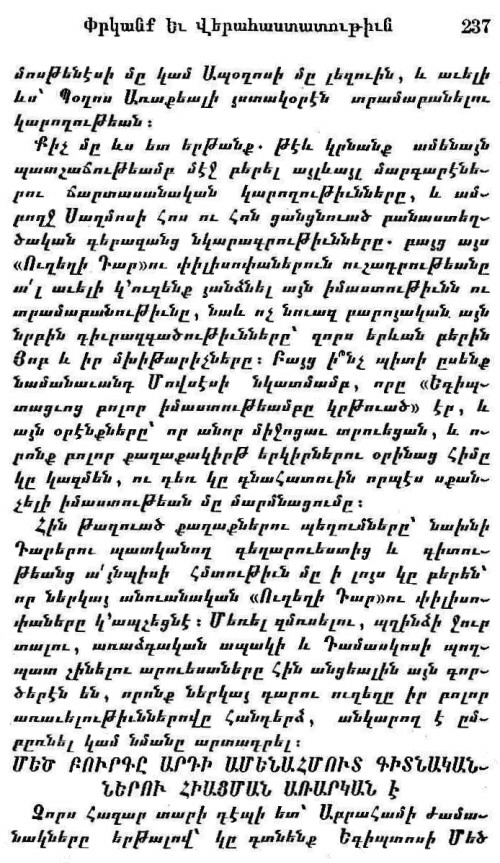 Փրկանք Եւ Վերահաստատութիւն 237
մոսթենէսի մը կամ Ապօղոսի մը լեզուին, և աւելի
ևս՝ Պօղոս Առաքեալի յստակօրէն տրամաբանելու
կարողութեան։
Քիչ մը ևս ետ երթանք. թէև կրնանք ամենայն
պատշաճութեամբ մէջ բերել այլևայլ մարգարէնե–
րու ճարտասանական կարողութիւնները, և ամ–
բողջ Սաղմոսի հոս ու հոն ցանցնուած բանաստեղ–
ծական գերազանց նկարագրութիւնները. բայց այս
«Ուղեղի Դար»ու փիլիսոփաներուն ուշադրութեանը
ա՛լ աւելի կ՚ուզենք յանձնել այն իմաստութիւնն ու
տրամաբանութիւնը, նաև ոչ նուազ բարոյական այն
նրբին զիւրազգածութիւնները՝ զորս երևան բերին
Յոբ և իր մխիթարիչները։ Բայց ի՞նչ պիտի ըսենք
նամանաւանդ Մովսէսի նկատմամբ, որը «Եգիպ–
տացւոց բոլոր իմաստութեամբը կրթուած» էր, և
այն օրէնքները՝ որ անոր միջոցաւ տրուեցան, և ո–
րոնք բոլոր քաղաքակիրթ երկիրներու օրինաց հիմը
կը կազմեն, ու դեռ կը գնահատուին որպէս սքան–
չելի իմաստութեան մը մարմնացումը։
Հին թաղուած քաղաքներու պեղումները՝ նախնի
Դարերու պատկանող գեղարուեստից և գիտու–
թեանց ա՛յնպիսի հմտութիւն մը ի լոյս կը բերեն՝
որ ներկայ անուանական «Ուղեղի Դար»ու փիլիսո–
փաները կ՚ապշեցնէ։ Մեռել զմռսելու, պղինձի ջուր
տալու, առաձգական ապակի և Դամասկոսի պող–
պատ շինելու արուեստները հին անցեալին այն գոր–
ծերէն են, որոնք ներկայ դարու ուղեղը իր բոլոր
առաւելութիւններովը հանդերձ, անկարող է ըմ–
բըռնել կամ նմանը արտադրել։
ՄԵԾ ԲՈՒՐԳԸ ԱՐԴԻ ԱՄԵՆԱՀՄՈՒՏ ԳԻՏՆԱԿԱՆ–
ՆԵՐՈՒ ՀԻԱՑՄԱՆ ԱՌԱՐԿԱՆ է
Չորս հազար տարի դէպի ետ՝ Աբրահամի ժամա–
նակները երթալով՝ կը գտնենք Եգիպտոսի Մեծ